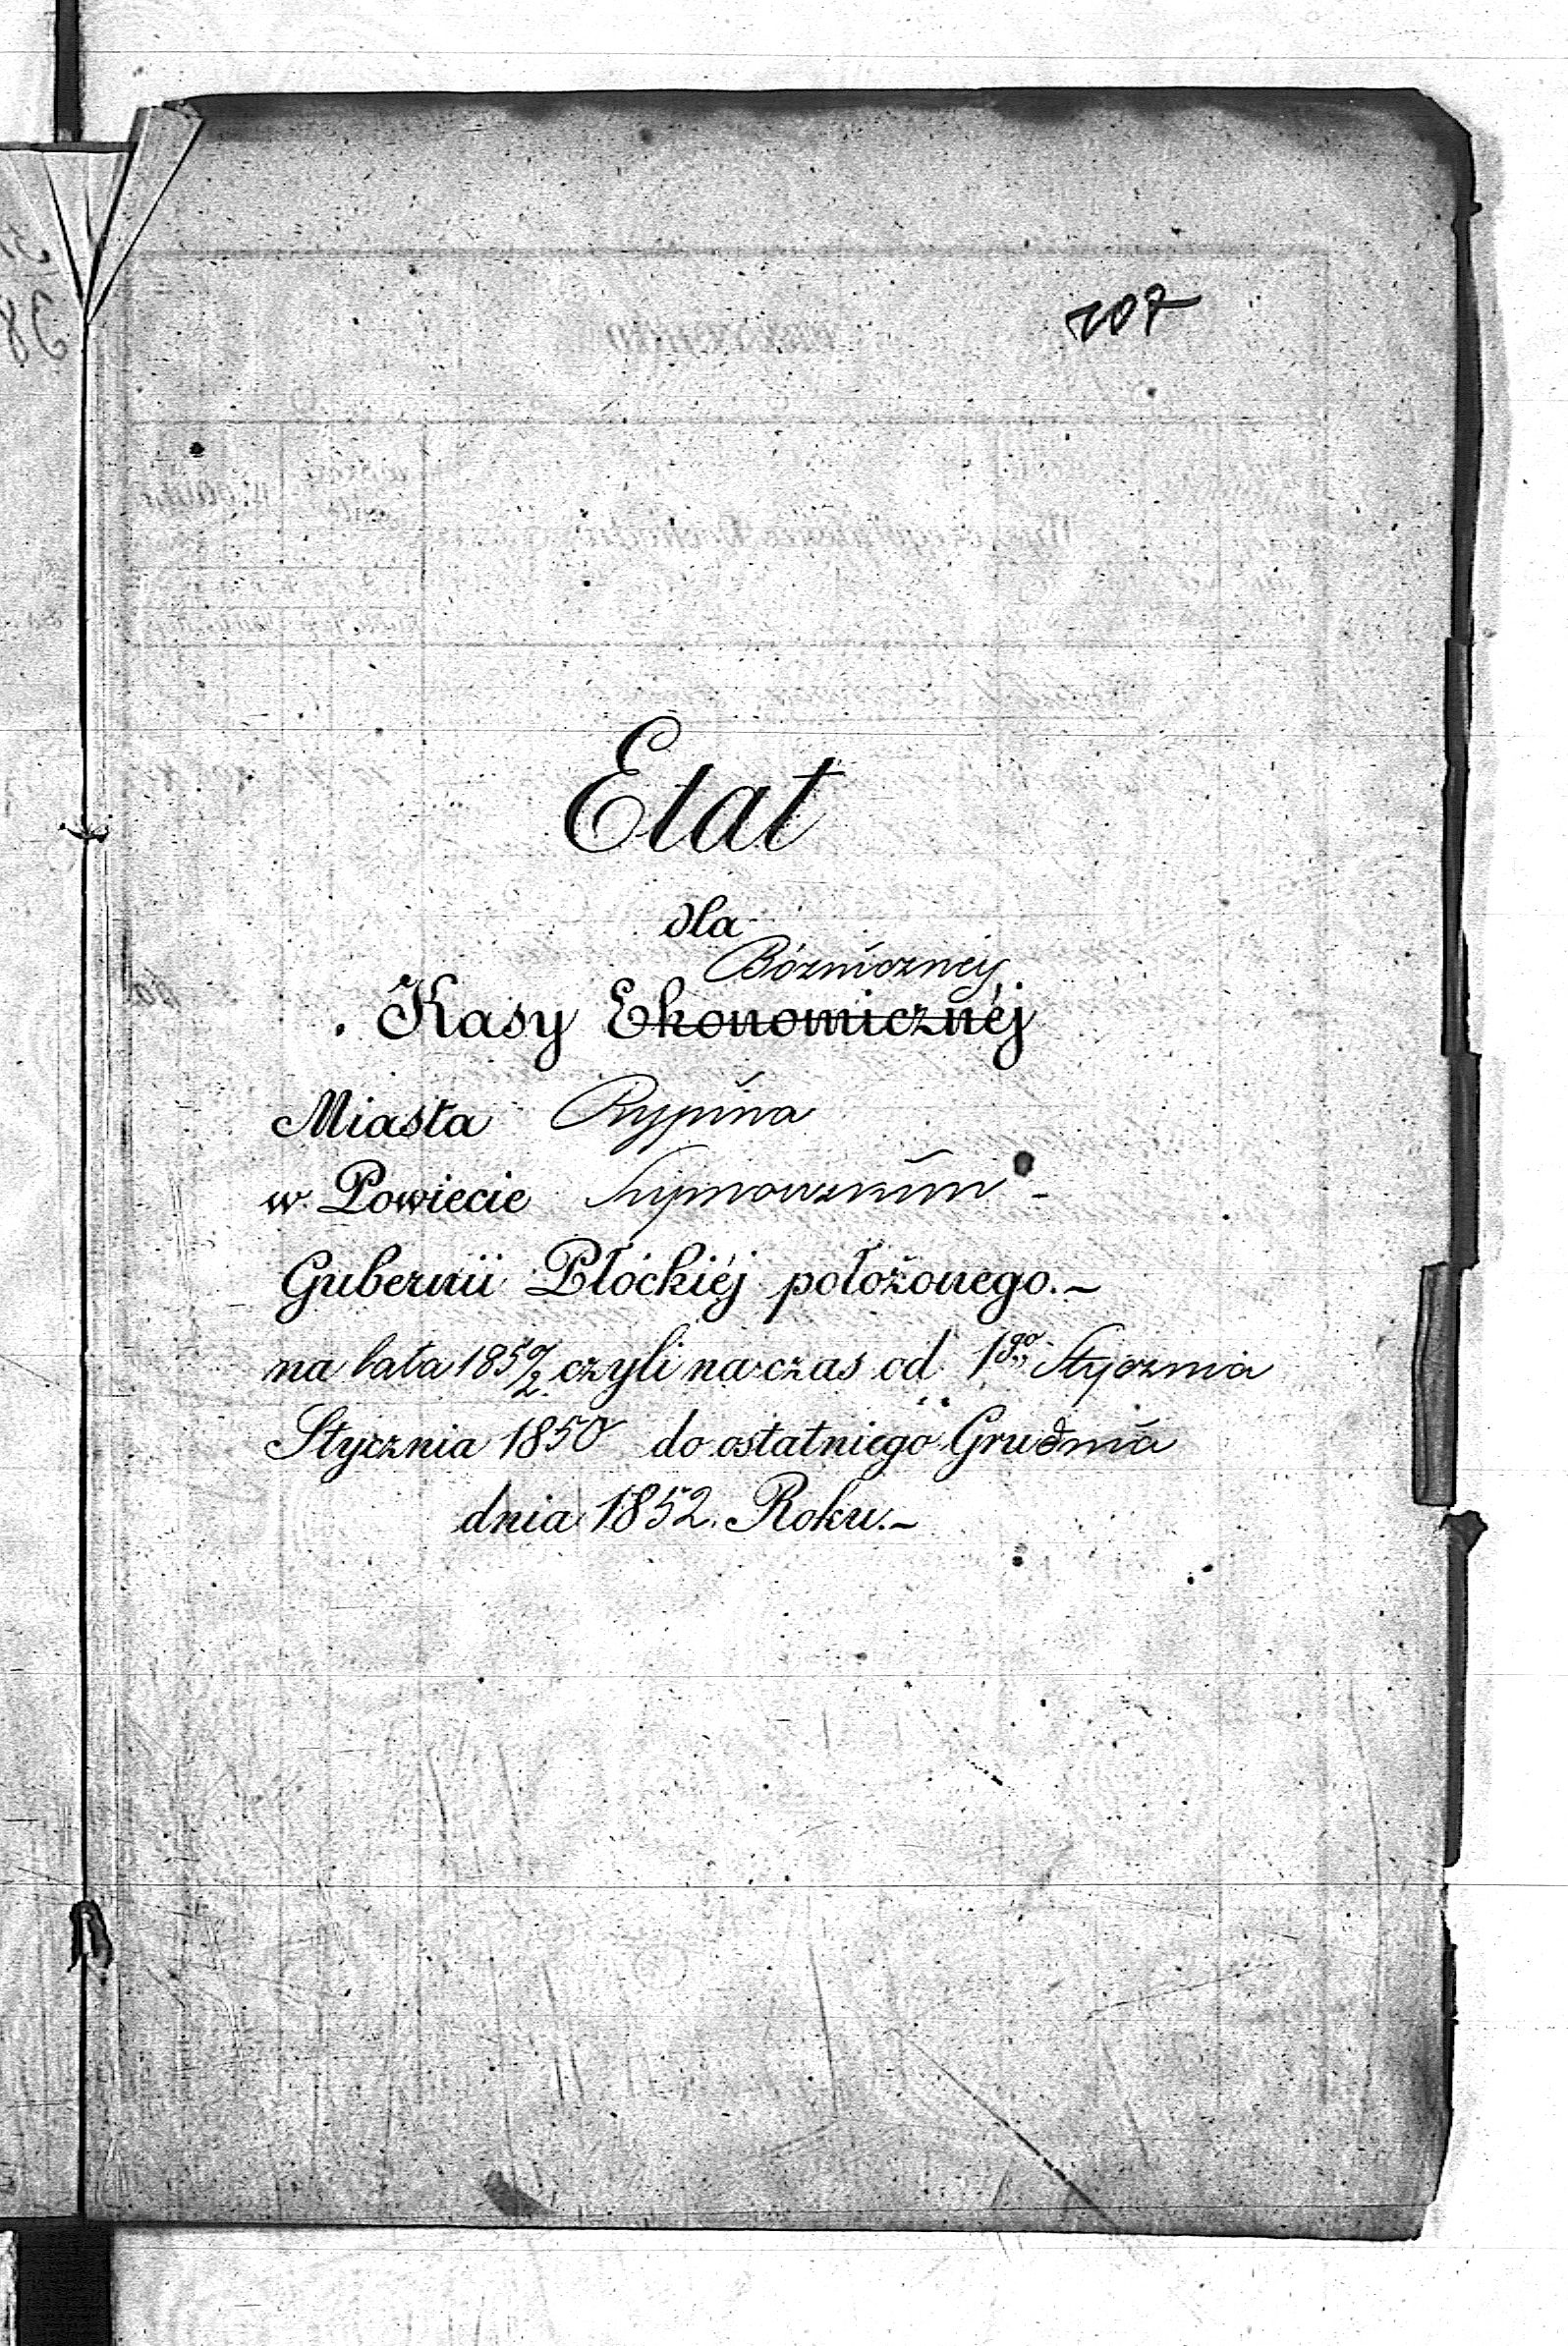 207
Etat
dla
Bózniczney
Kasy Ekonomicznéj
Miasta Rypina
w Powiecie Lipnowskim -
Gubernii Płockiéj położonego.-
na lata 1850/2 czyli na czas od 1go Stycznia
Stycznia 1850 do ostatniego Grudnia
dnia 1852. Roku.-